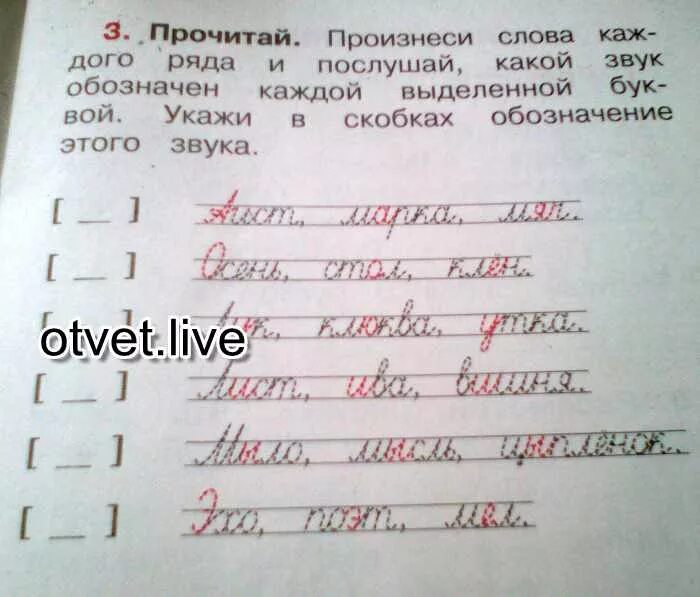 3. Прочитай. Произнеси слова каж-
дого ряда и послушай, какой звук
обозначен каждой выделенной бук-
вой. Укажи в скобках обозначение
этого звука.
[ _ ] Аист, марка, мяч.
[ _ ] Осень, стол, клён.
Лук, клюква, утка.
otvet.live
[ _ ] Лист, ива, вишня.
[ _ ] Мыло, мысль, цыплёнок.
[ _ ] Эхо, поэт, мел.